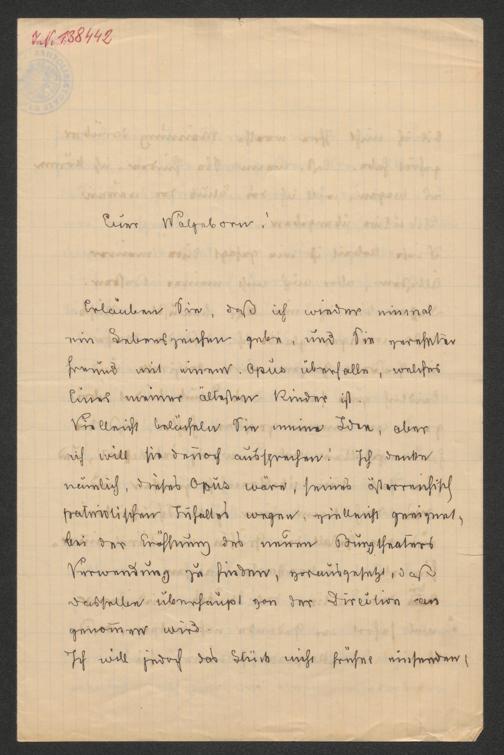 I.N. 138442
Euer Wolgeborn!
Erlauben Sie, daß ich wieder einmal
ein Lebenszeichen gebe, und Sie verehrter
Freund mit einem Opus überfalle, welches
Eines meiner ältesten Kinder ist.
Vielleicht belächeln Sie meine Idee, aber
ich will sie dennoch aussprechen! Ich denke
nämlich, dieses Opus wäre, seines österreichisch
patriotischen Inhaltes wegen, vielleicht geeignet,
bei der Eröffnung des neuen Burgtheaters
Verwendung zu finden, vorausgesetzt, daß
dasselbe überhaupt von der Direction an
genommen wird.
Ich will jedoch das Stück nicht früher einsenden,